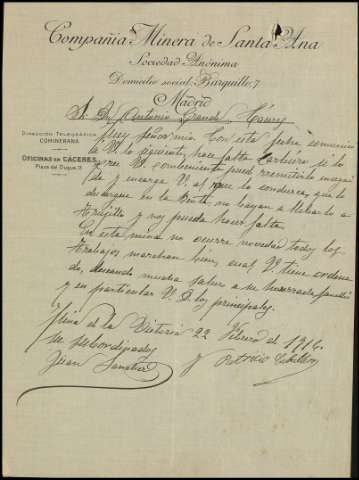 Compañia Minera de Santa Ana
Sociedad Anónima
Domicilio social: Barquillo, 7
Madrid
DIRECCIÓN TELEGRÁFICA
COMINERANA
OFICINAS EN CÁCERES
Plaza del Duque, 11
S. D. Antonio
Muy Señor mio Con esta fecha comunico
a V. lo siguiente, hace falta Carburo si lo
cree V. conveniente puede remitirlo
y encarga V. al que lo conduzca, que lo
no hayan a llebarlo a
Trujillo y nos pueda hacer falta.
En esta mina no ocurre novedad todos los
trabajos marchan bien, cual V. tiene ordena
do, deseando mucha salud a su
y en particular V. D. los principales.
Mina de la Victoria 22 Febrero de 1916.
sus subordinados
Juan Sanchez y Patrocio